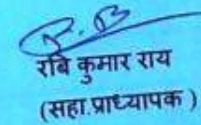 रबि कुमार राय
(सहा.प्राध्यापक )